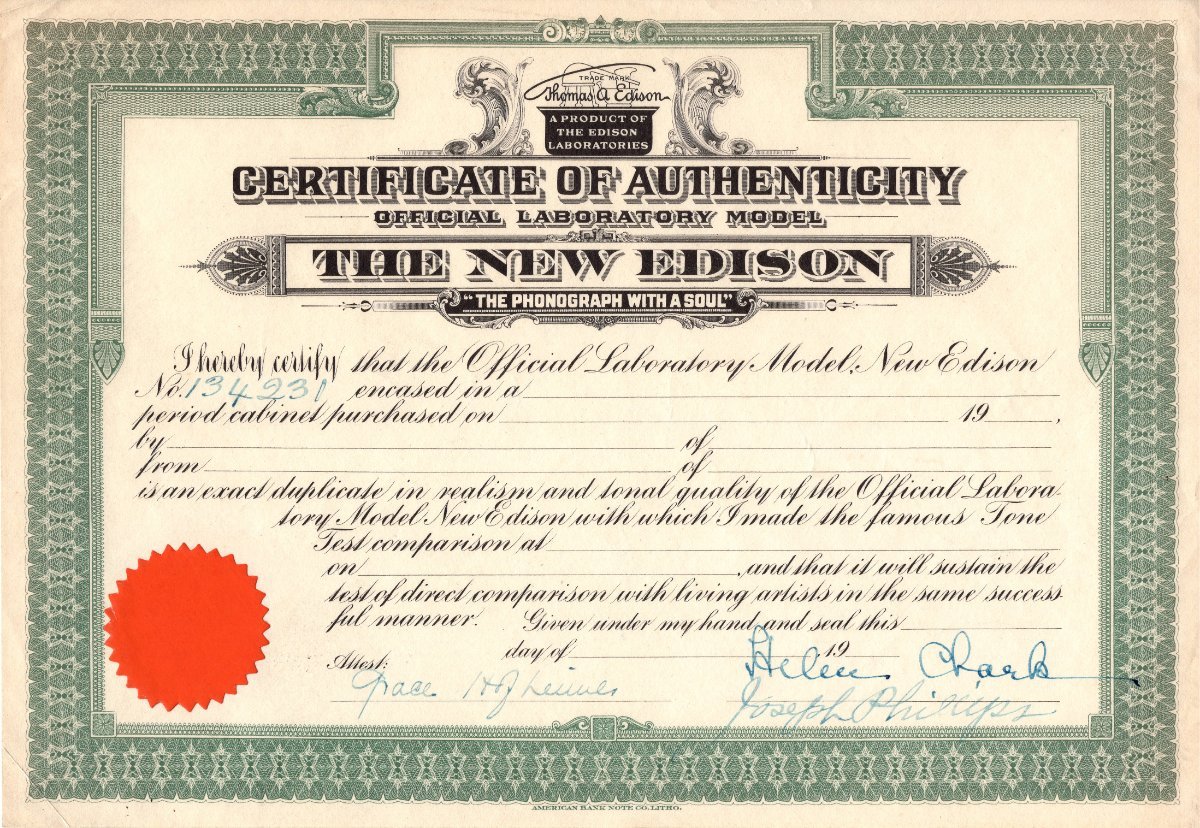 TRADE MARK
Thomas A Edison
A PRODUCT OF
THE EDISON
LABORATORIES
CERTIFICATE OF AUTHENTICITY
OFFICIAL LABORATORY MODEL
THE NEW EDISON
"THE PHONOGRAPH WITH A SOUL"
I hereby certify that the Official Laboratory Model, New Edison
No. 134231 encased in a
period cabinet purchased on 19 ,
by of
from of
is an exact duplicate in realism and tonal quality of the Official Labora-
tory Model New Edison with which I made the famous Tone
Test comparison at
on , and that it will sustain the
test of direct comparison with living artists in the same success
ful manner. Given under my hand and seal this
day of 19
Helen Clark
Attest:
Grace
Joseph Phillips
AMERICAN BANK NOTE CO. LITHO.